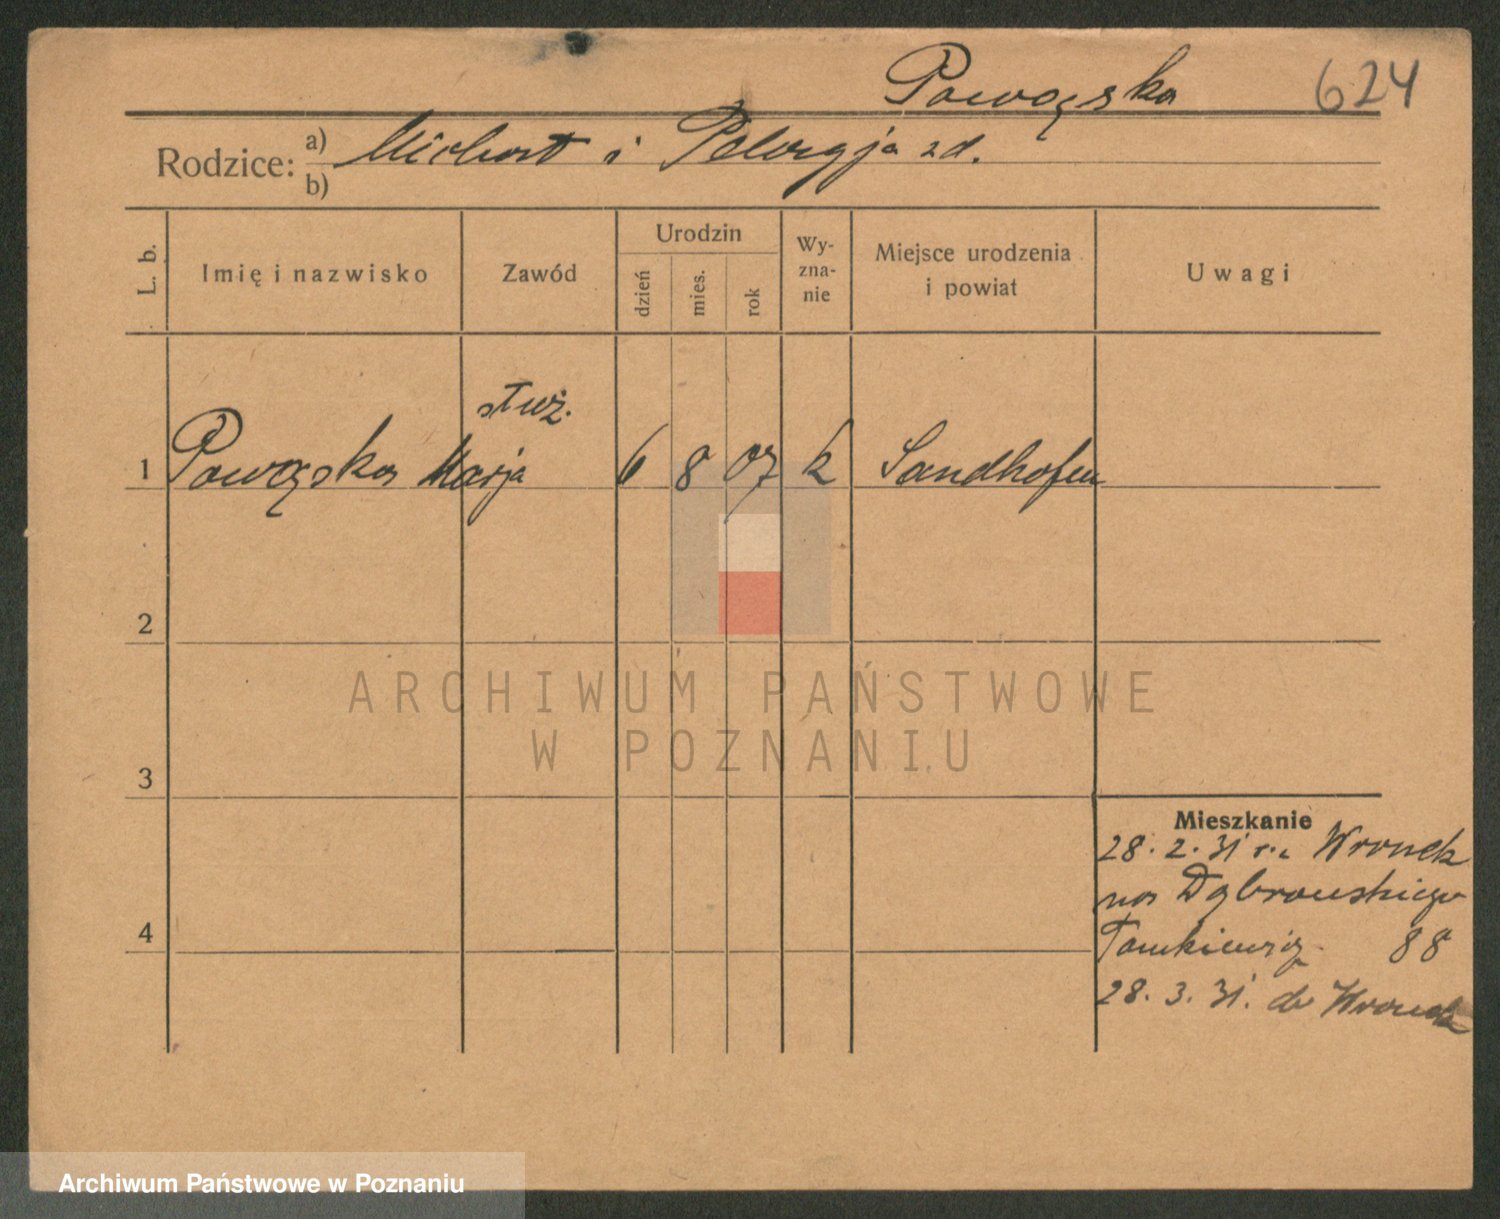 Powązka 624
Rodzice: a) Michał i Pelagja zd.
b)
L. b. Imię i nazwisko Zawód Urodzin dzień mies. rok Wy-zna-nie Miejsce urodzenia i powiat Uwagi
służ.
1 Powązka Marja 6 8 07 k Sandhofen
2
ARCHIWUM PAŃSTWOWE
W POZNANIU
3
Mieszkanie
28. 2. 31 r. z Wronek
na Dąbrowskiego
4
Tomkiewicz 88
28. 3. 31. do Wronek
Archiwum Państwowe w Poznaniu